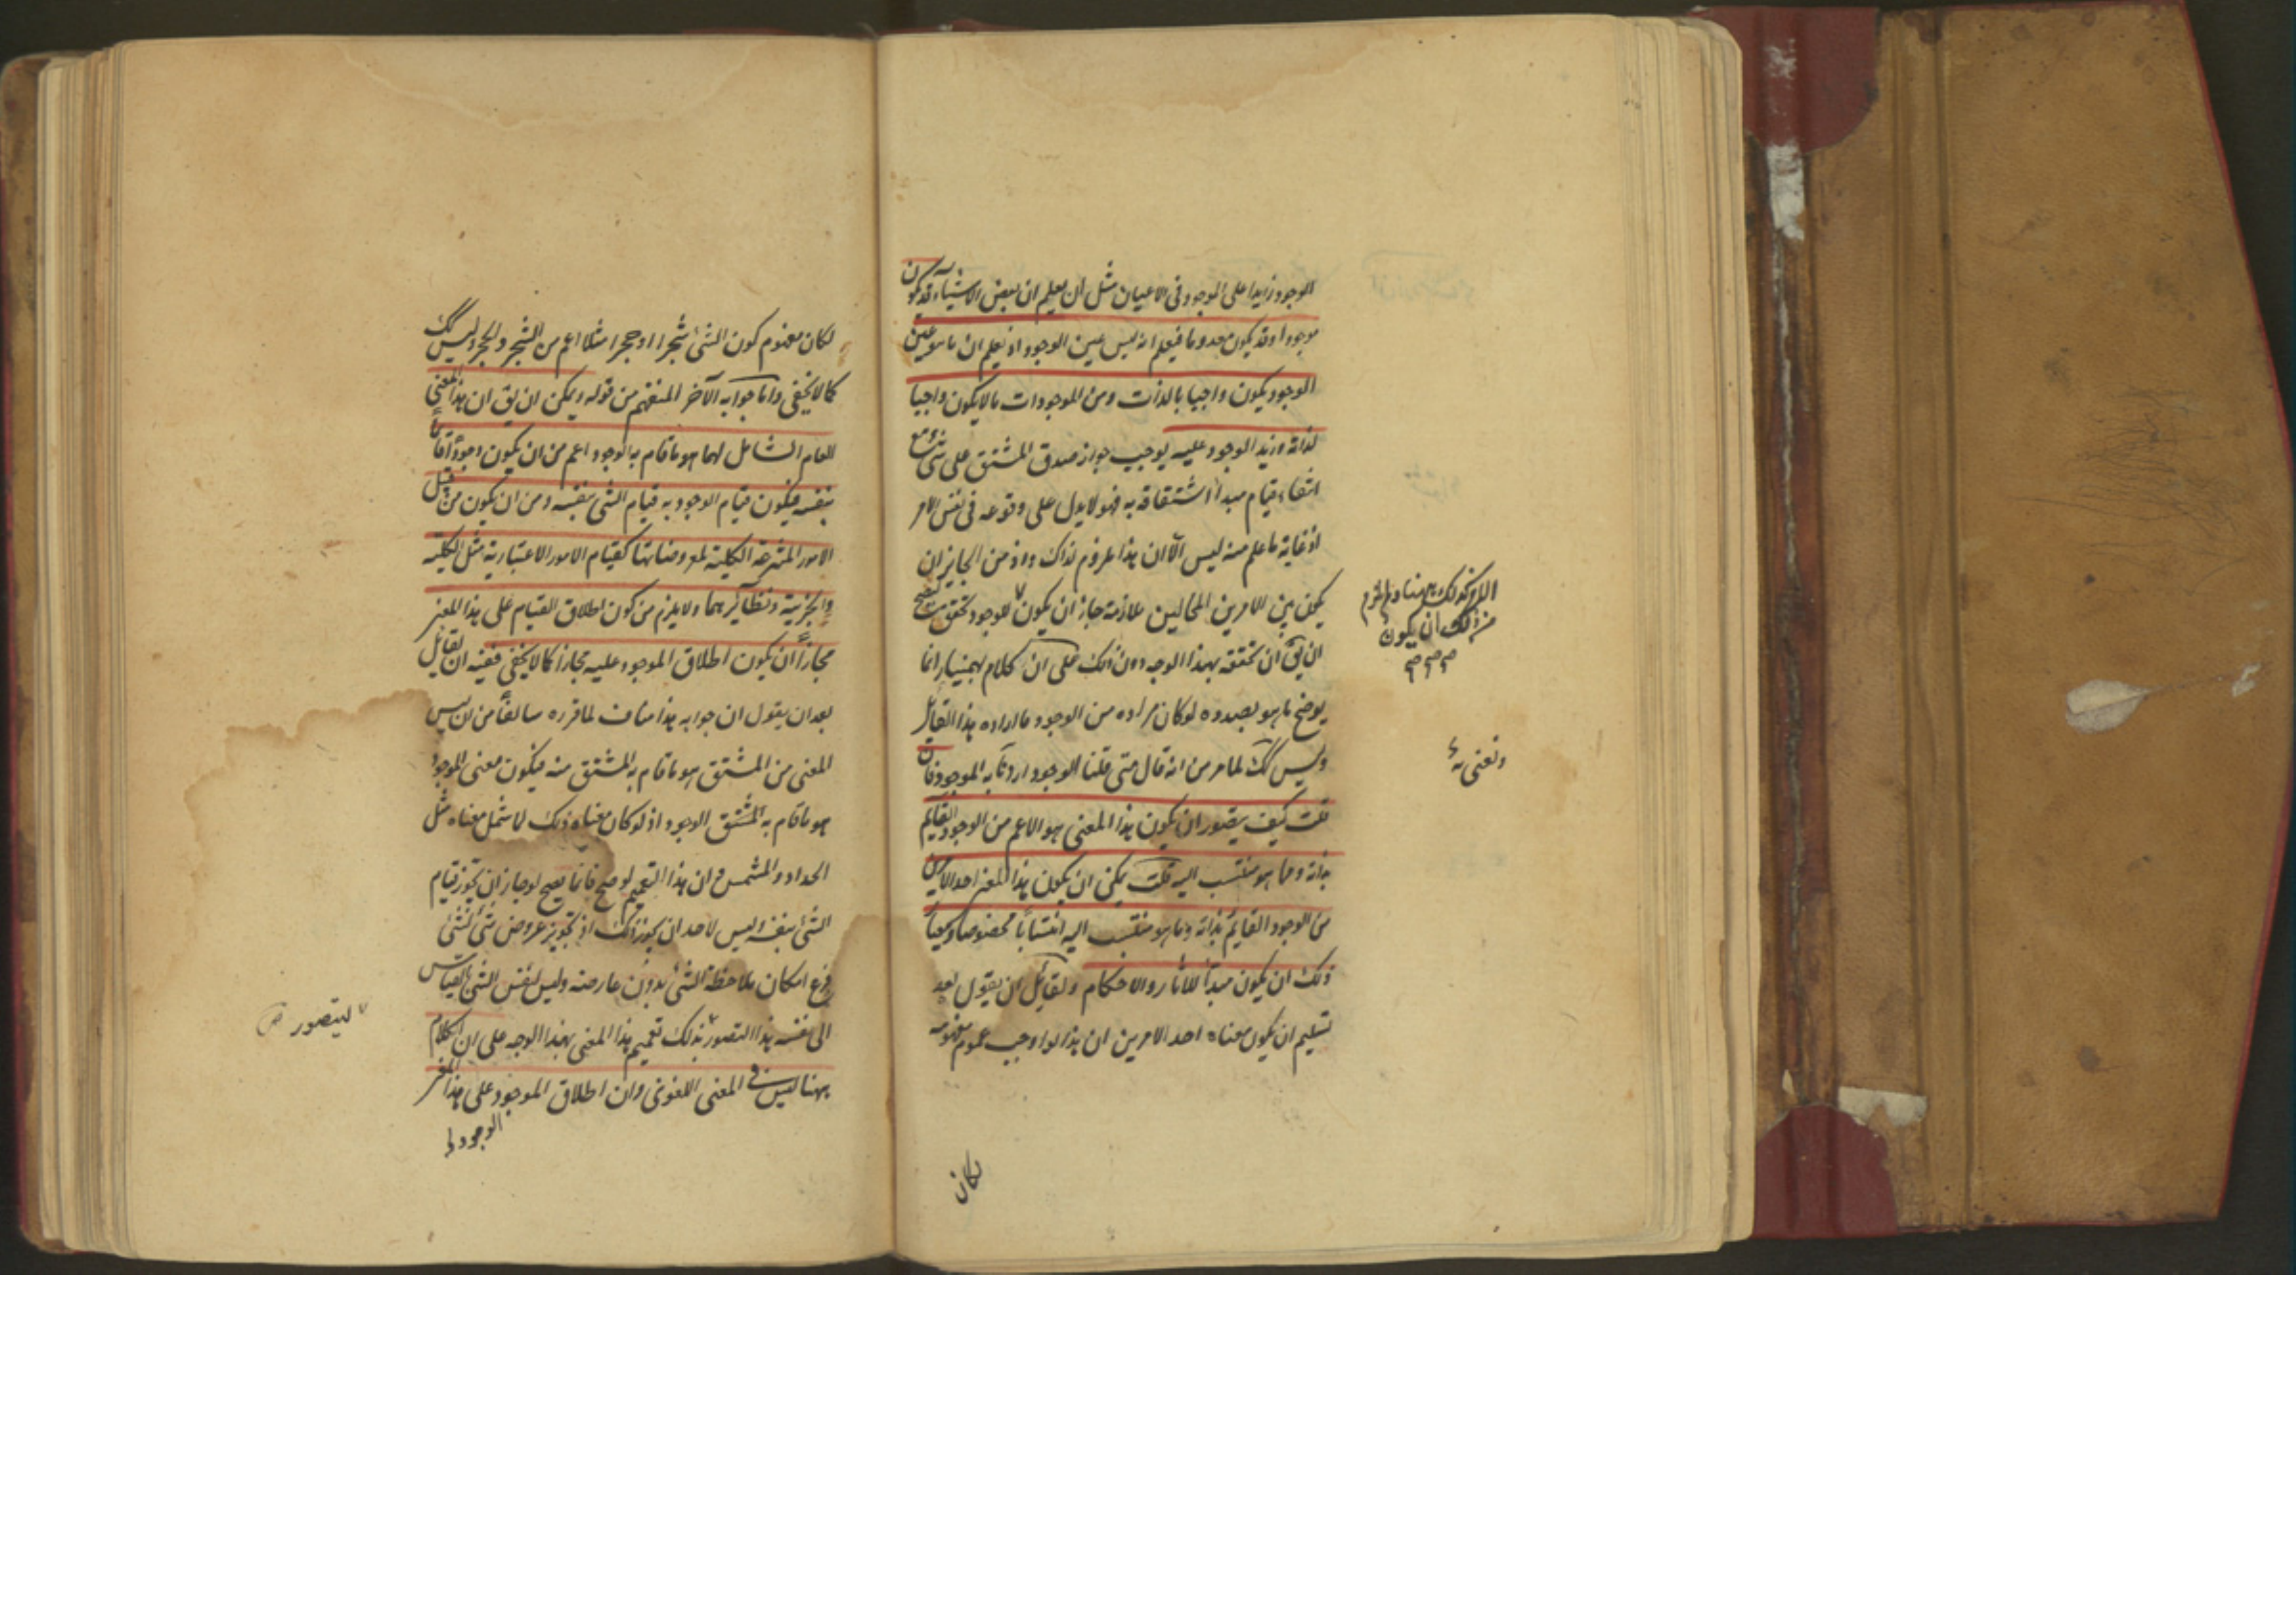 الوجود زايدا على الوجود فى الاعيان مثل ان يعلم ان بعض الاشياء قد يكون
موجودا وقد يكون معدوما فيعلم انه ليس عين الوجود او نعلم ان ما هو عين
الوجود يكون واجبا بالذات ومن الموجودات ما لا يكون واجبا
لذاته وزيد الوجود عليه يوجب جواز صدق المشتق على شئ مع
انتفاء قيام مبدأ اشتقاقه به فهو لا يدل على وقوعه فى نفس الامر
اذ غاية ما علم منه ليس الا ان هذا ملزوم لذاك واذ من الجايز ان
يكون بين الامرين المحالين ملازمة جاز ان يكون للوجود تحقق حتى يصح
ان يق ان تحققه بهذا الوجه دون ذلك على ان كلام بهمنيار انما
يوضح ما هو بصدده لو كان مراده من الوجود ما اراده هذا القايل
وليس كك لما مر من انه قال متى قلنا الوجود اردنا به الموجود فان
قلت كيف يتصور ان يكون هذا المعنى هو الاعم من الوجود القايم
بذاته وما هو منتسب اليه قلت يمكن ان يكون هذا المعنى احد الامرين
من الوجود القايم بذاته وما هو منتسب اليه انتسابا مخصوصا ومعيار
ذلك ان يكون مبدأ للآثار والاحكام ولقايل ان يقول بعد
تسليم ان يكون معناه احد الامرين ان هذا لو اوجب عموم مفهومه
كان
من ذلك ان يكون
ونعنى به
لكان مفهوم كون الشئ شجرا او حجرا مثلا اعم من الشجر والحجر وليس كك
كما لا يخفى واما جوابه الآخر المنفهم من قوله ويمكن ان يق ان هذا المعنى
العام الشامل لهما هو ما قام به الوجود اعم من ان يكون وجودا قايما
بنفسه فيكون قيام الوجود به قيام الشئ بنفسه ومن ان يكون من قبيل
الامور المنتزعة الكلية لمعروضاتها كقيام الامور الاعتبارية مثل الكلية
والجزئية ونظائرهما ولا يلزم من كون اطلاق القيام على هذا المعنى
مجازا ان يكون اطلاق الموجود عليه مجازا كما لا يخفى ففيه ان لقايل
بعد ان يقول ان جوابه هذا مناف لما قرره سالفا من ان ليس
المعنى من المشتق هو ما قام به المشتق منه فيكون معنى الموجود
هو ما قام به المشتق الوجود اذ لو كان معناه ذلك لما شمل معناه مثل
الحداد والمشمس وان هذا التعميم لو صح فانما يصح لو جاز ان يجوز قيام
الشئ بنفسه وليس لاحد ان يجوز ذلك اذ تجويز عروض شئ لشئ
فرع امكان ملاحظة الشئ بدون عارضه وليس لنفس الشئ بالقياس
الى نفسه هذا التصور بذلك تعميم هذا المعنى بهذا الوجه على ان الكلام
ههنا ليس فى المعنى اللغوى وان اطلاق الموجود على هذا المعنى
ليتصور